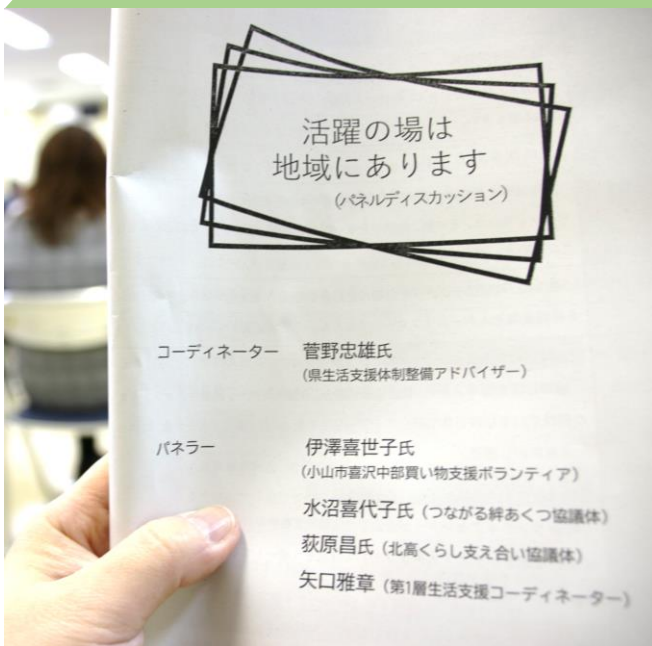 活躍の場は
地域にあります
(パネルディスカッション)
コーディネーター 菅野忠雄氏
(県生活支援体制整備アドバイザー)
パネラー 伊澤喜世子氏
(小山市喜沢中部買い物支援ボランティア)
水沼喜代子氏 (つながる絆あくつ協議体)
荻原昌氏 (北高くらし支え合い協議体)
矢口雅章 (第1層生活支援コーディネーター)